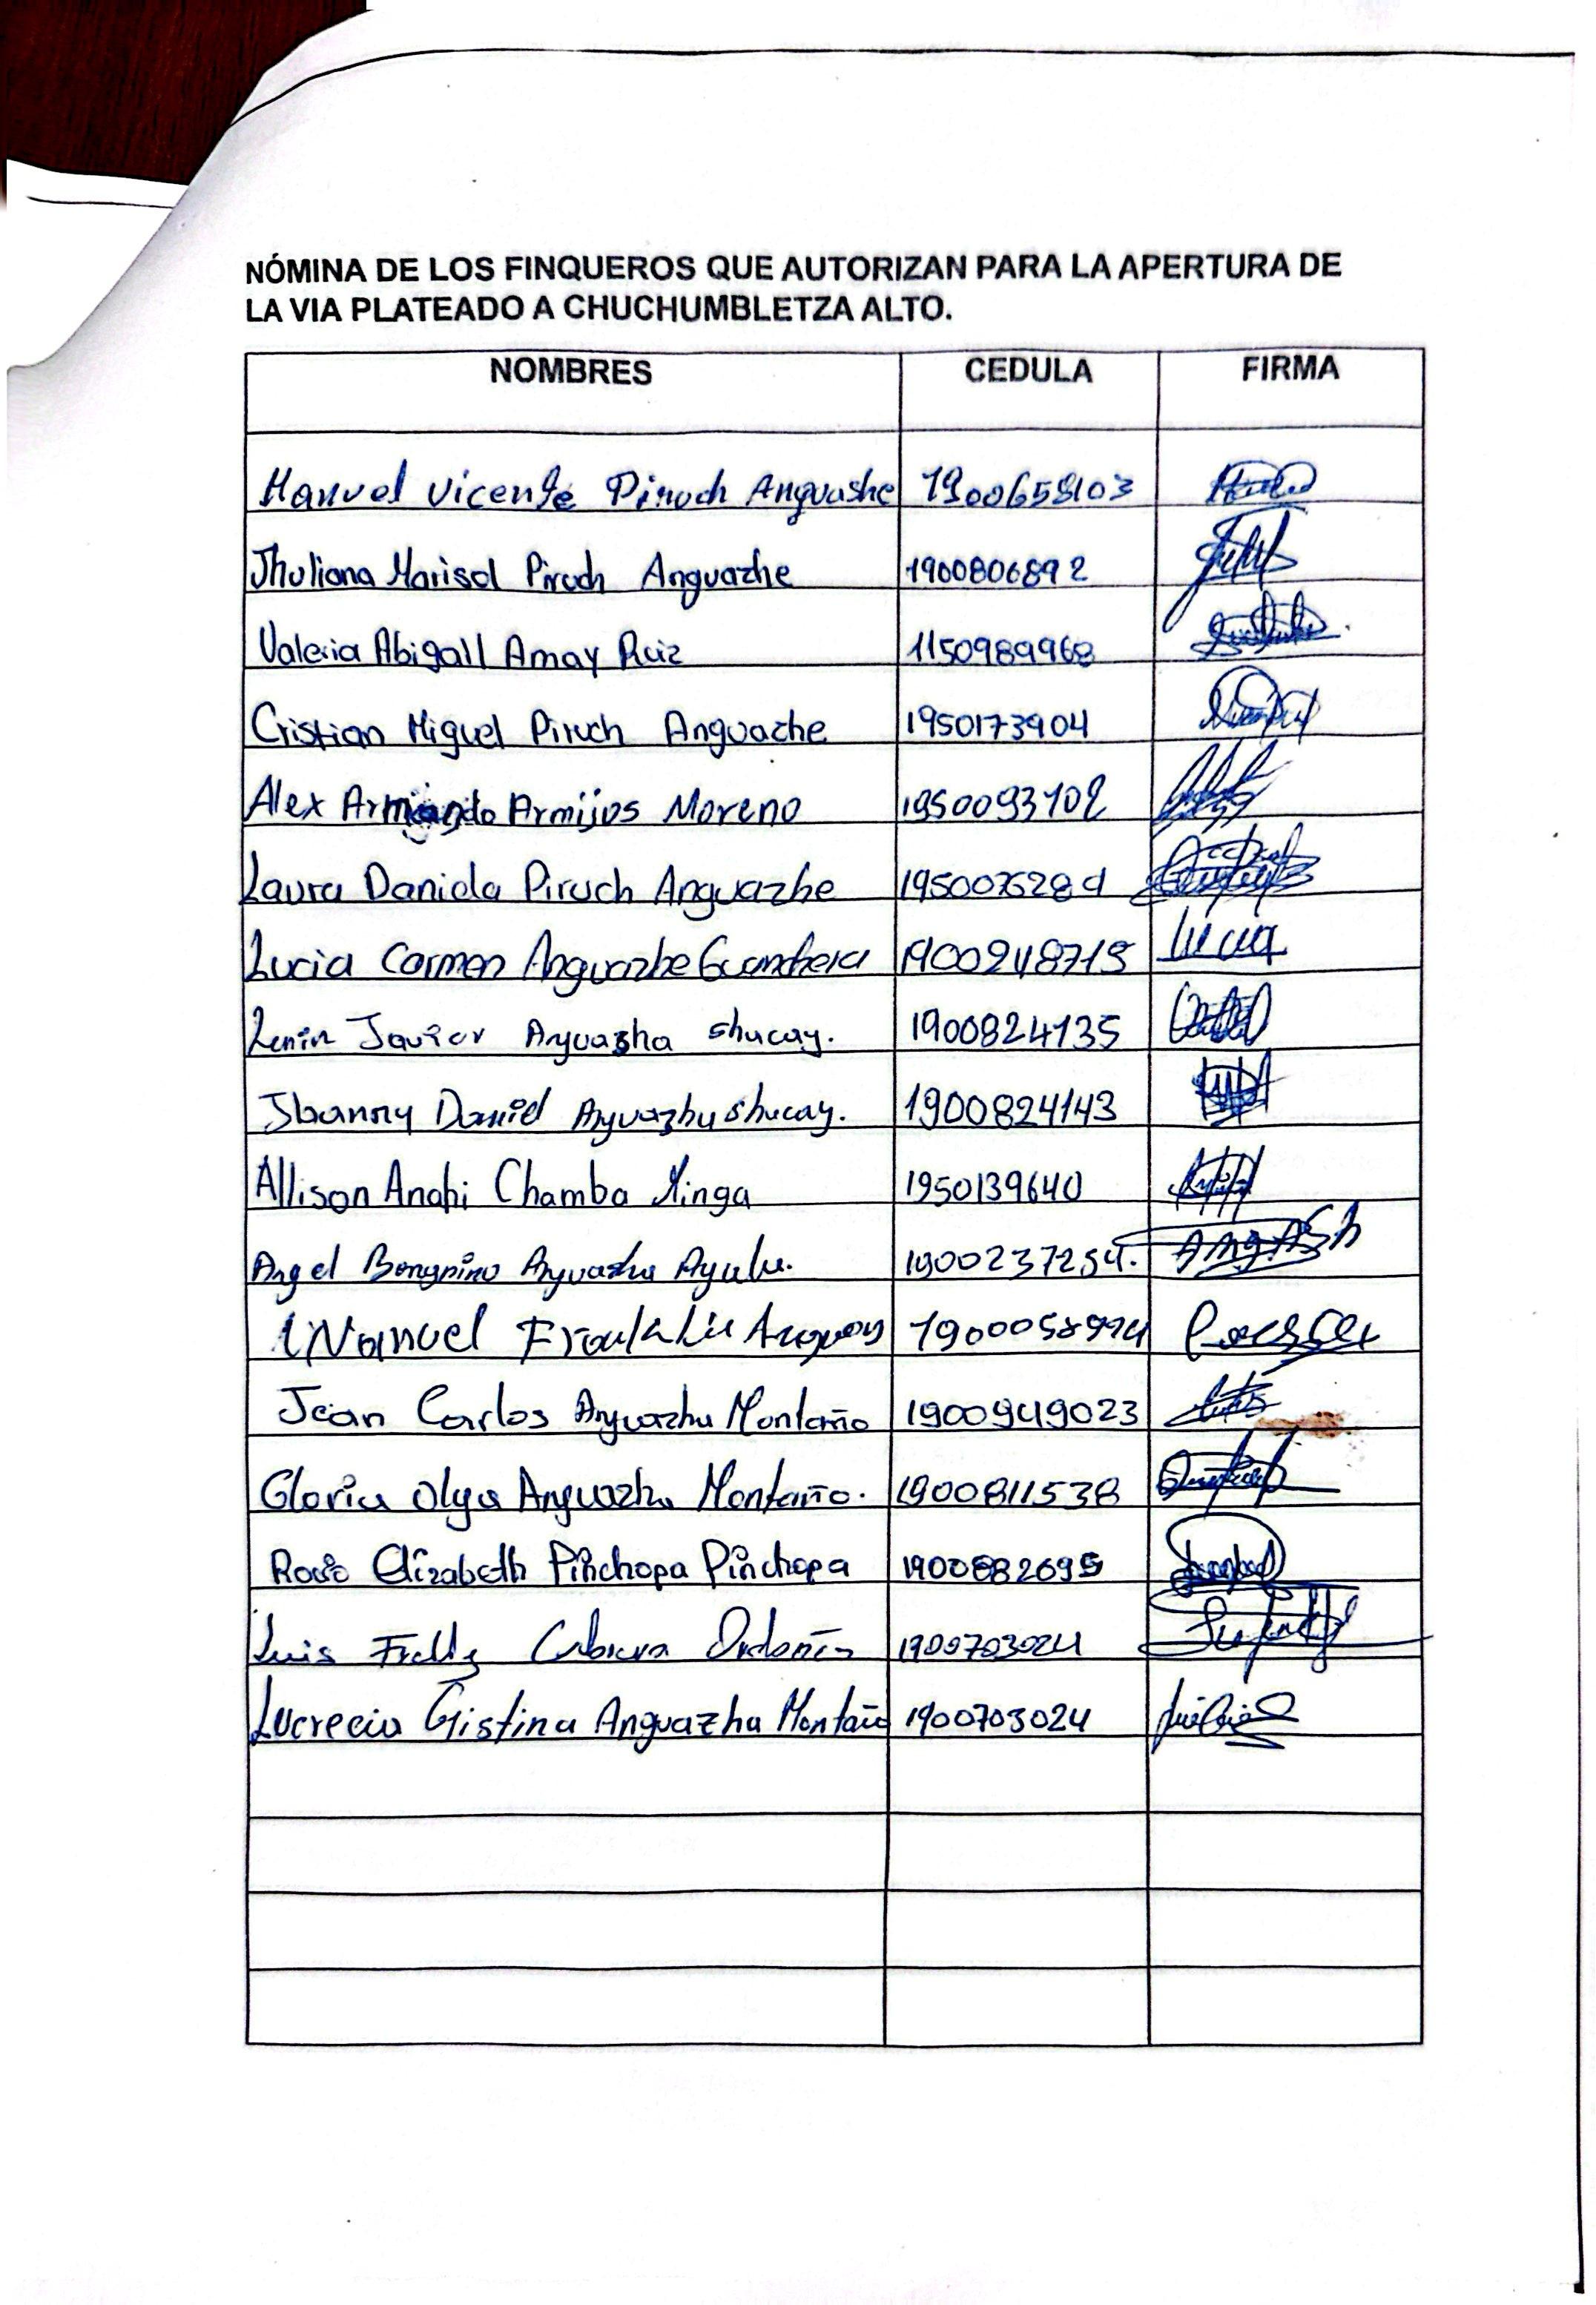 NÓMINA DE LOS FINQUEROS QUE AUTORIZAN PARA LA APERTURA DE
LA VIA PLATEADO A CHUCHUMBLETZA ALTO.
NOMBRES CEDULA FIRMA
Manuel Vicente Piruch Anguashe 1900658103
Jhuliana Marisol Piruch Anguazhe 1900806892
Valeria Abigall Amay Ruiz 1150989968
Cristian Miguel Piruch Anguache 1950173904
Alex Armando Armijos Moreno 1950093102
Laura Daniela Piruch Anguazhe
Lucia Carmen Anguazhe 1900248715 Lucia
Lenin Javier Anguazha Shucay. 1900824135
Jhanny Daniel Anguazhu Shucay. 1900824143
Allison Anahi Chamba 1950139640
Angel Anguazha
Manuel
Jean Carlos Anguazhu Montaño 1900949023
Gloria Olga Anguazhu Montaño. 1900811538
Rocio Elizabeth Pinchopa Pinchopa 1900882695
Luis Cabrera 1900703024
Lucrecia Cristina Anguazha Montaño 1900703024